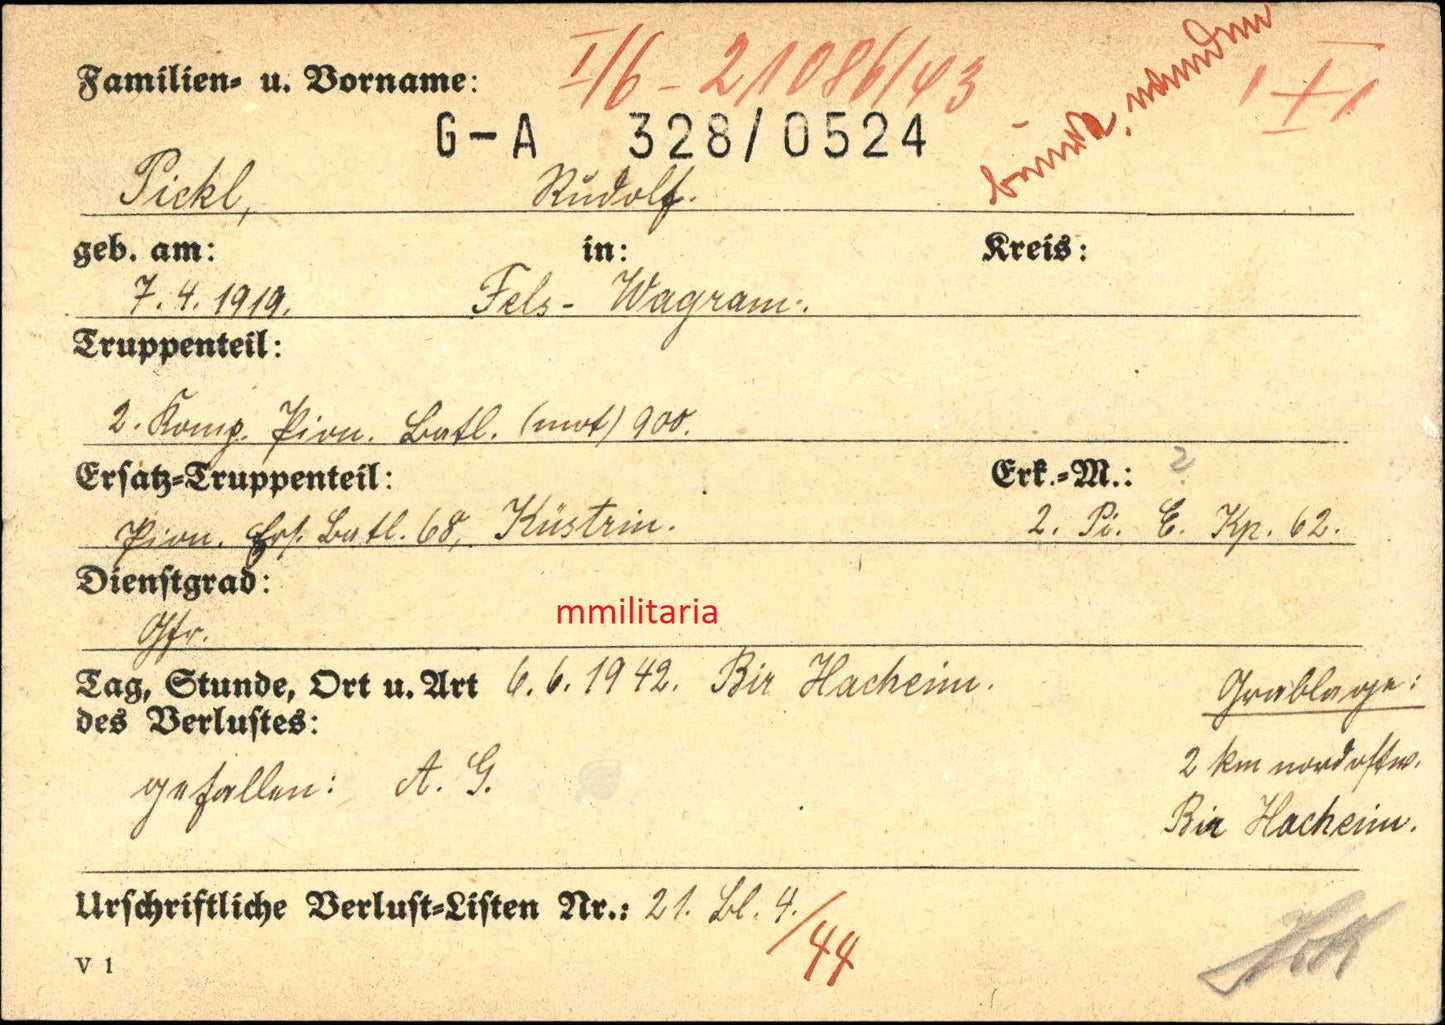 Familien- u. Vorname: I/6 - 21086/43
G-A 328/0524
Pickl, Rudolf.
geb. am: in: Kreis:
7. 4. 1919. Fels- Wagram.
Truppenteil:
2. Komp. Pion. Batl. (mot) 900.
Ersatz-Truppenteil: Erk.-M.: ?
Pion. Ers. Batl. 68, Küstrin. 2. Pi. E. Kp. 62.
Dienstgrad:
Gfr.
mmilitaria
Tag, Stunde, Ort u. Art 6. 6. 1942. Bir Hacheim. Grablage:
des Verlustes:
2 km nordostw.
gefallen: A. G.
Bir Hacheim.
Urschriftliche Verlust-Listen Nr.: 21. Bl. 4./44
V 1